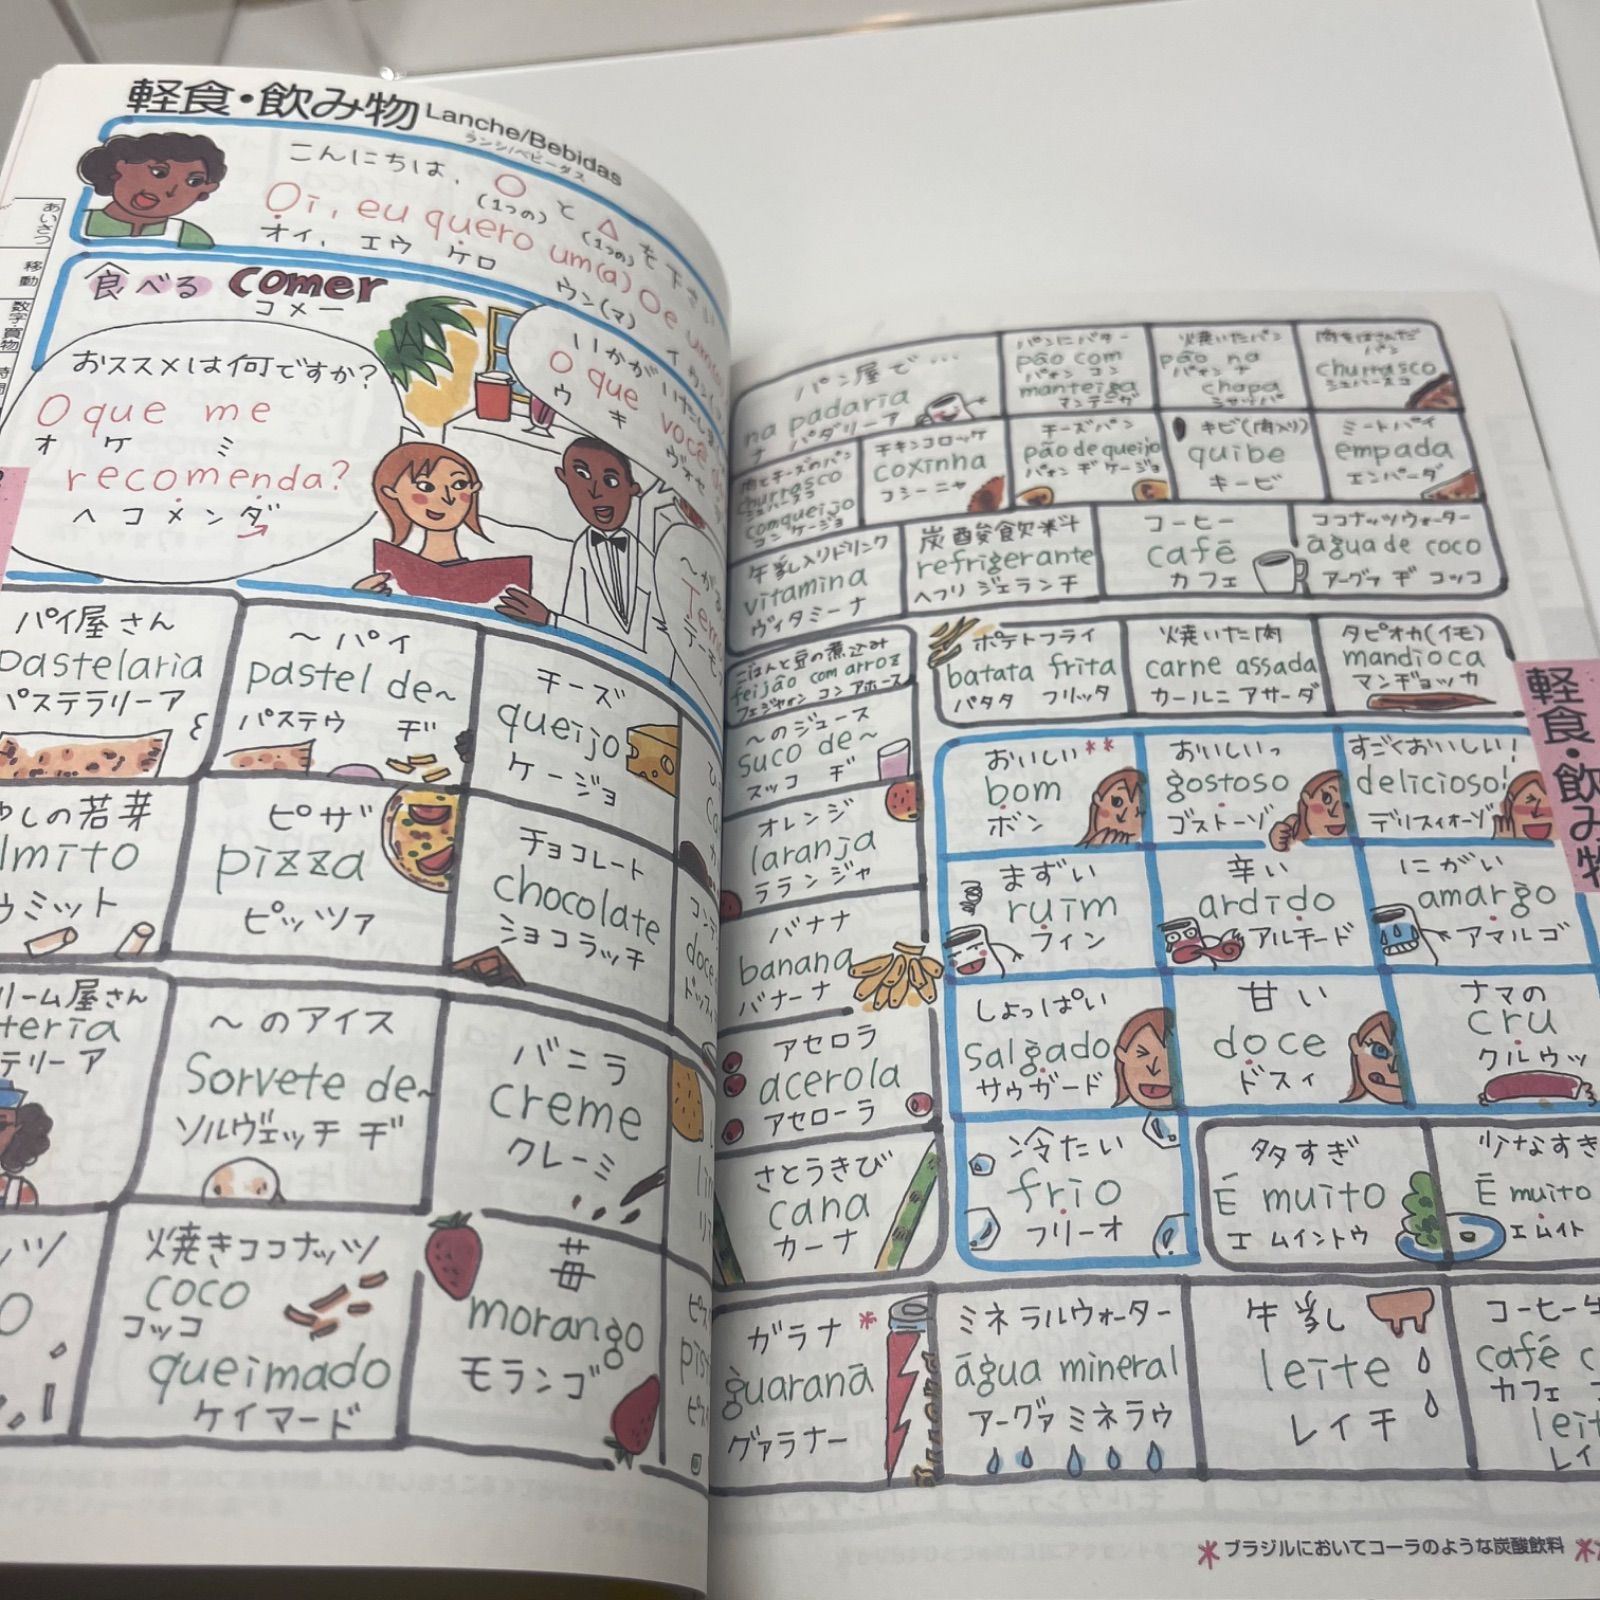 軽食・飲み物 Lanche/Bebidas
ランシ/ベビーダス
こんにちは、○と△を下さい
(1つの) (1つの)
Oi, eu quero um(a) O e um(a)
オイ、エウ ケロ ウン(マ) イ
食べる comer
コメー
おススメは何ですか?
O que me
オ ケ ミ
recomenda?
ヘコメンダ
いかがいたしま
O que você
ウ キ ヴォセ
パイ屋さん
pastelaria
パステラリーア
〜パイ
pastel de~
パステウ ヂ
チーズ
queijo
ケージョ
やしの若芽
lmito
ゥミット
ピザ
pizza
ピッツァ
チョコレート
chocolate
ショコラッチ
リーム屋さん
teria
テリーア
〜のアイス
Sorvete de~
ソルヴェッチ ヂ
バニラ
creme
クレーミ
焼きココナッツ
coco
コッコ
queimado
ケイマード
苺
morango
モランゴ
あいさつ
移動
数字・買物
時間
パン屋で…
na padaria
ナ パダリーア
パンにバター
pão com
パォン コン
manteiga
マンテーガ
火焼いたパン
pão na
パォン ナ
chapa
シャッパ
肉をはさんだ
パン
churrasco
シュハースコ
肉とチーズのパン
churrasco
シュハースコ
com queijo
コン ケージョ
チキンコロッケ
coxinha
コシーニャ
チーズパン
pão de queijo
パォン ヂ ケージョ
キビ(肉入り)
quibe
キービ
ミートパイ
empada
エンパーダ
牛乳入りドリンク
vitamina
ヴィタミーナ
炭酸飲料
refrigerante
ヘフリジェランチ
コーヒー
café
カフェ
ココナッツウォーター
água de coco
アーグァ ヂ コッコ
ごはんと豆の煮込み
feijão com arroz
フェジャォン コン アホース
ポテトフライ
batata frita
バタタ フリッタ
焼いた肉
carne assada
カールニ アサーダ
タピオカ(イモ)
mandioca
マンヂョッカ
〜のジュース
suco de~
スッコ ヂ
オレンジ
laranja
ラランジャ
バナナ
banana
バナーナ
アセロラ
acerola
アセローラ
さとうきび
cana
カーナ
おいしい**
bom
ボン
おいしいっ
gostoso
ゴストーゾ
すごくおいしい!
delicioso!
デリスィオーゾ
まずい
ruim
フィン
辛い
ardido
アルヂード
にがい
amargo
アマルゴ
しょっぱい
salgado
サゥガード
甘い
doce
ドスィ
ナマの
cru
クルゥッ
冷たい
frio
フリーオ
多すぎ
É muito
エ ムイントゥ
少なすぎ
É muito
エ ムイト
ガラナ*
guaraná
グァラナー
ミネラルウォーター
água mineral
アーグァ ミネラゥ
牛乳
leite
レイチ
コーヒー牛
café c
カフェ
leit
レイ
軽食・飲み物
*ブラジルにおいてコーラのような炭酸飲料